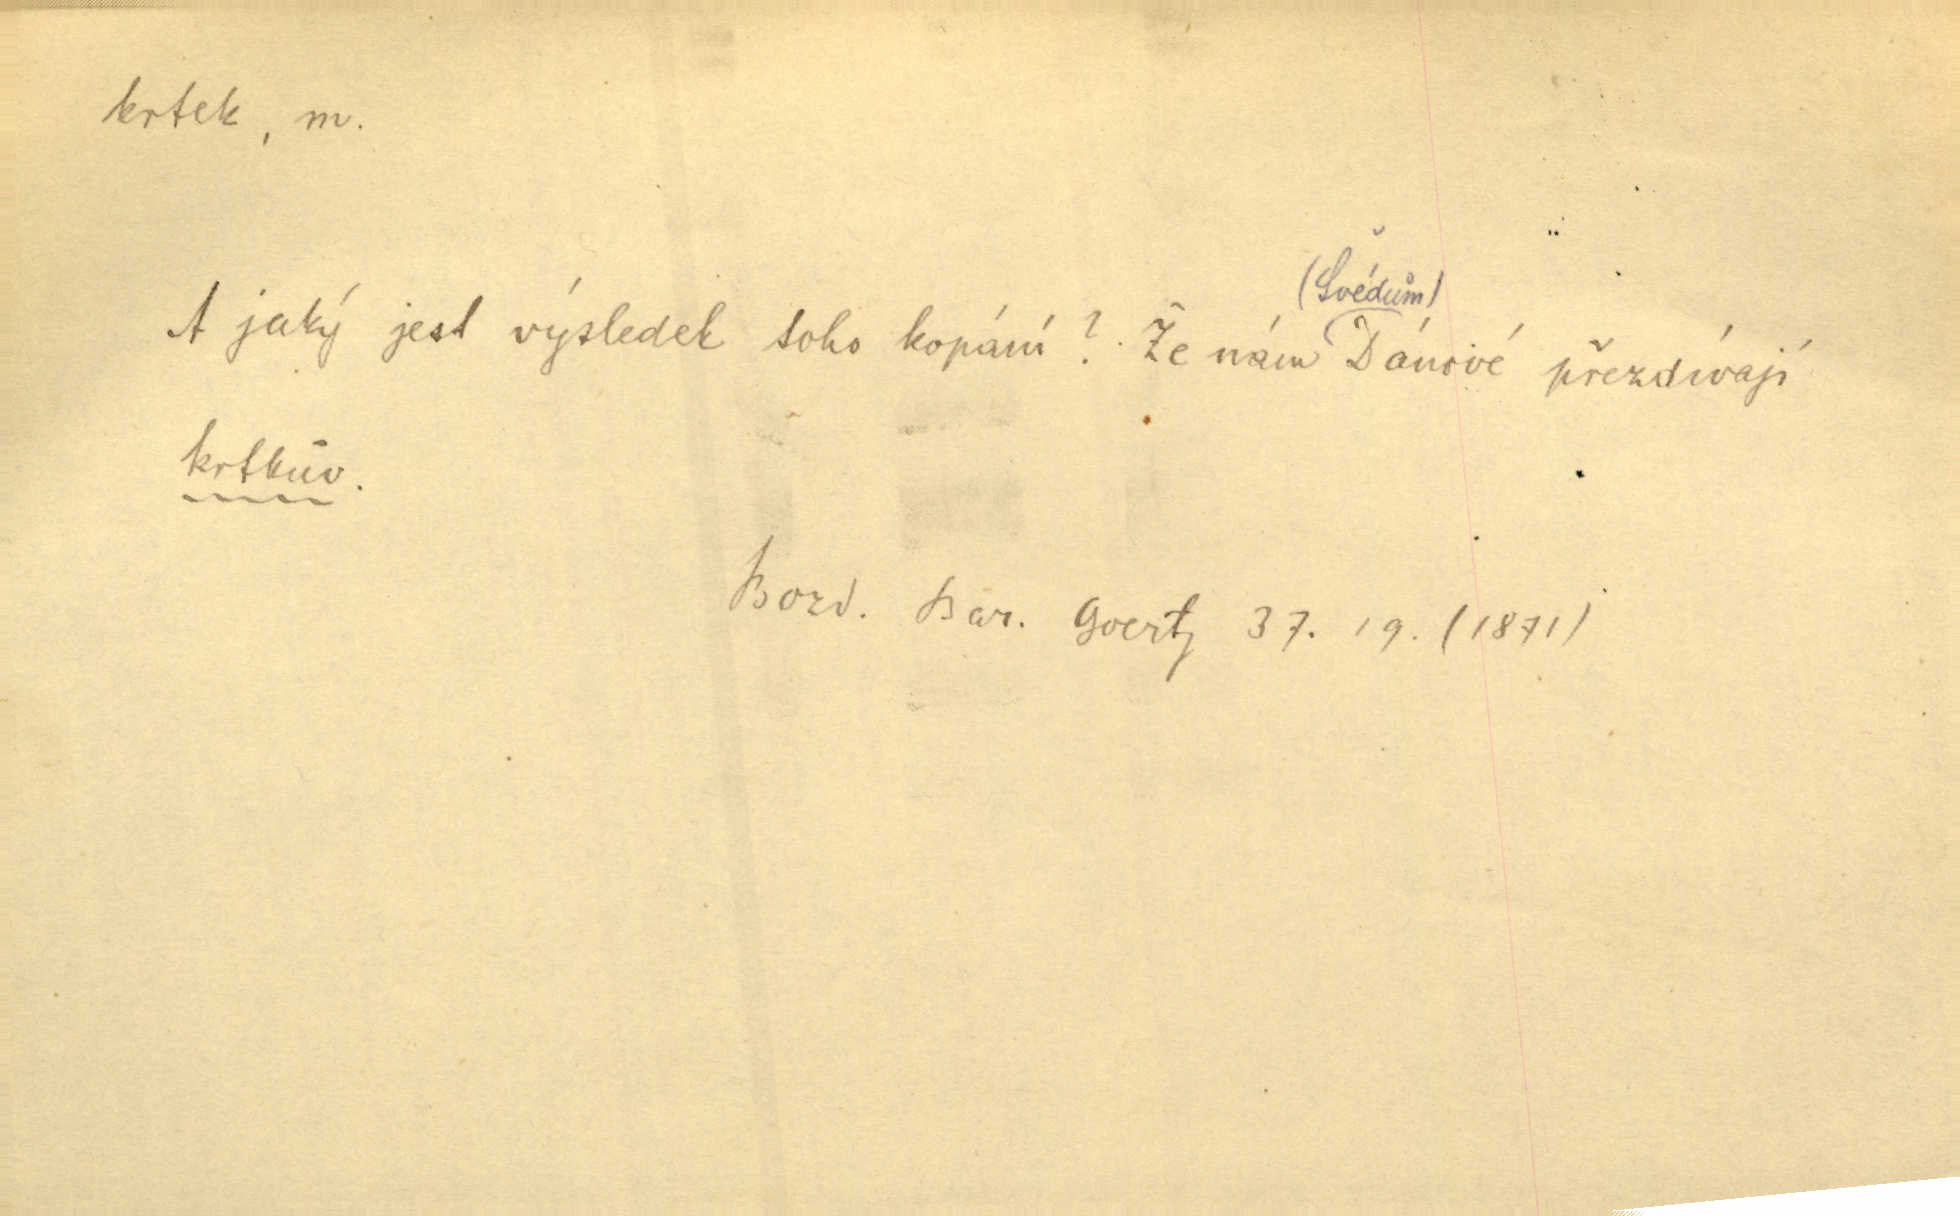 krtek, m.
(Švédům)
A jaký jest výsledek toho kopání? Že nám Dánové přezdívají
krtkův.
Bozd. Bar. Goertz 37. 19. (1871)